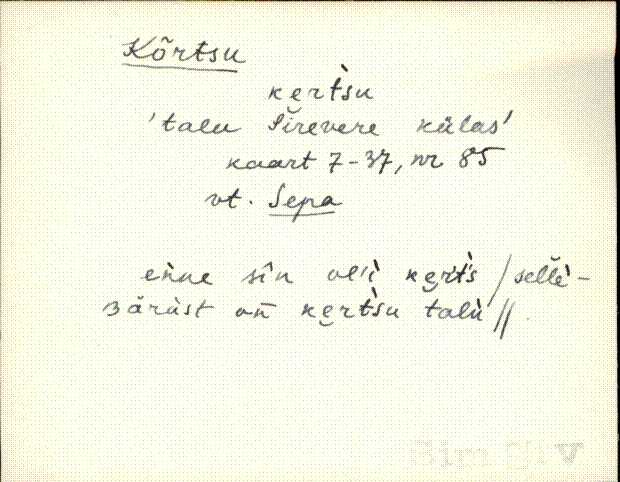 Kõrtsu
ke̮rt̀su
'talu Sirevere külas'
kaart 7-37, nr 85
vt. Sepa
eǹne sîn ol'ì ke̮r̀t's / sellè-
ʒärüst on̄ ke̮rt̀su talù //